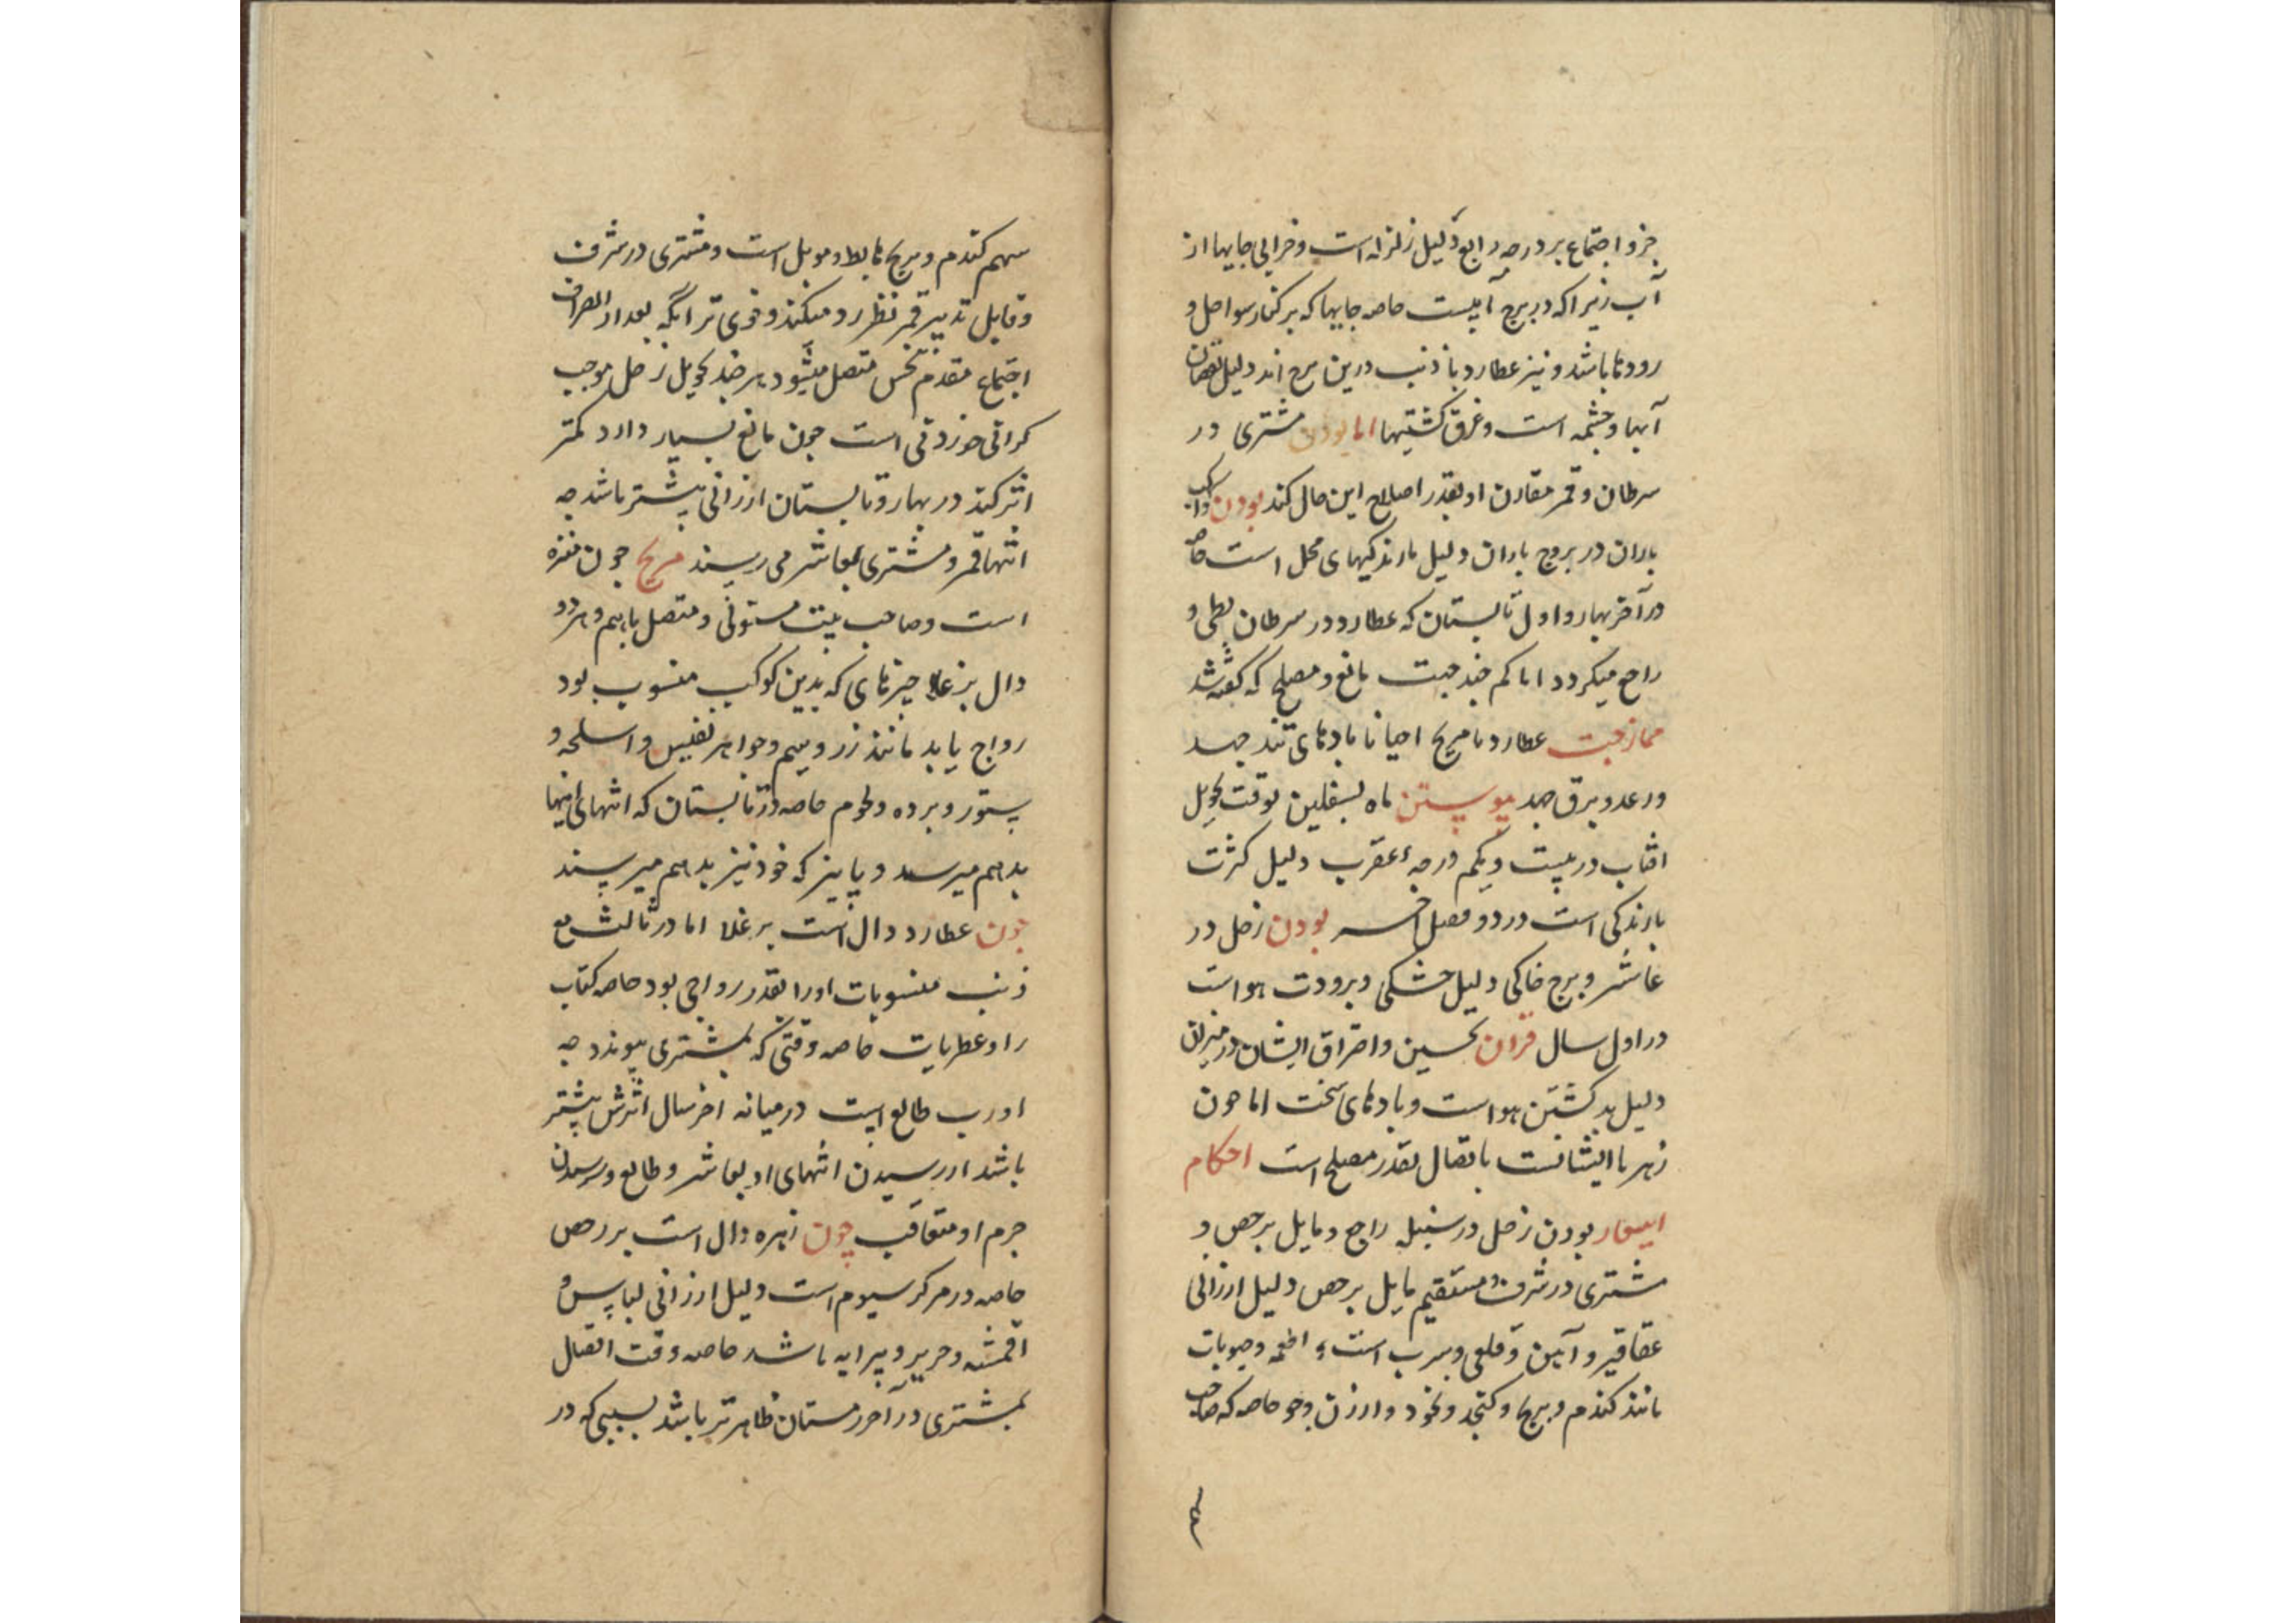 جزو اجتماع بر درجه رابع دلیل زلزله است و خرابی جایها از
آب زیرا که در برج آبیست خاصه جایها که بر کنار سواحل و
رودها باشد و نیز عطارد با ذنب درین برج اند دلیل نقصان
آبها و چشمه است و غرق کشتیها اما بودن مشتری در
سرطان و قمر مقارن او بقدر اصلاح این حال کند بودن کواکب
باران در بروج باران دلیل بارندکیهای محل است خاصه
در آخر بهار و اول تابستان که عطارد در سرطان بطی و
راجع میکردد اما کم ضد جهت مانع و مصلح که کفته شد
ممازجت عطارد با مریخ احیانا بادهای تند جهد
و رعد و برق جهد پیوستن ماه بسفلین بوقت تحویل
افتاب در بیست ویکم درجه عقرب دلیل کثرت
بارندکی است در دو فصل بودن زحل در
عاشر و برج خاکی دلیل خشکی و برودت هواست
در اول سال قران نحسین و احتراق ایشان در میزان
دلیل بد کشتن هواست و بادهای سخت اما چون
زهره با ایشانست باتصال بقدر مصلح است احکام
اسعار بودن زحل در سنبله راجع و مایل برخص و
مشتری در شرف مستقیم مایل برخص دلیل ارزانی
عقاقیر و آهن و قلعی و سرب است و اطعمه و حبوبات
مانند کندم و برنج و کنجد و نخود و ارزن و جو خاصه که صاحب
سهم کندم و برنج هابط و موبل است و مشتری در شرف
و قابل تدبیر قمر نظر رد میکند و قوی تر آنکه بعد از انصراف
اجتماع مقدم بنحس متصل میشود هر چند تحویل زحل موجب
کرانی خوردنی است چون مانع بسیار دارد کمتر
اثر کند در بهار و تابستان ارزانی بیشتر باشد چه
انتها قمر و مشتری بعاشر می رسند مریخ چون
است و صاحب بیت مستوئی و متصل باهم و هر دو
دال بر غلا چیزهای که بدین کوکب منسوب بود
رواج یابد مانند زر و سیم و جواهر نفیس و اسلحه و
ستور و برده و لحوم خاصه در تابستان که انتهای اینها
بدهم میرسد و پاییز که خود نیز بدهم میرسند
چون عطارد دال است بر غلا اما در ثالث مع
ذنب منسوبات او را بقدر رواجی بود خاصه کتاب
را و عطریات خاصه وقتی که بمشتری پیوندد چه
او رب طالع است در میانه اخر سال اثرش بیشتر
باشد از رسیدن انتهای او بعاشر و طالع و رسیدن
جرم او متعاقب چون زهره دال است بر رخص
خاصه در مرکز سیوم است دلیل ارزانی لباس و
اقمشه و حریر و پیرایه باشد خاصه وقت اتصال
بمشتری در آخر زمستان ظاهرتر باشد بسببی که در